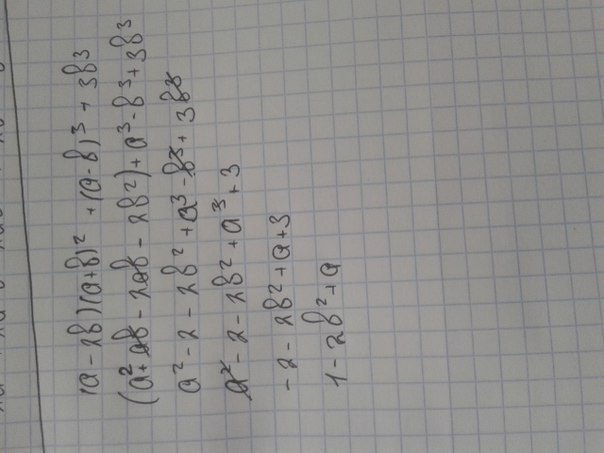 (a-2b)(a+b)² + (a-b)³ + 3b³
(a²+ab-2ab-2b²)+a³-b³+3b³
a²-2-2b²+a³-b³+3b³
a²-2-2b²+a³+3
-2-2b²+a+3
1-2b²+a